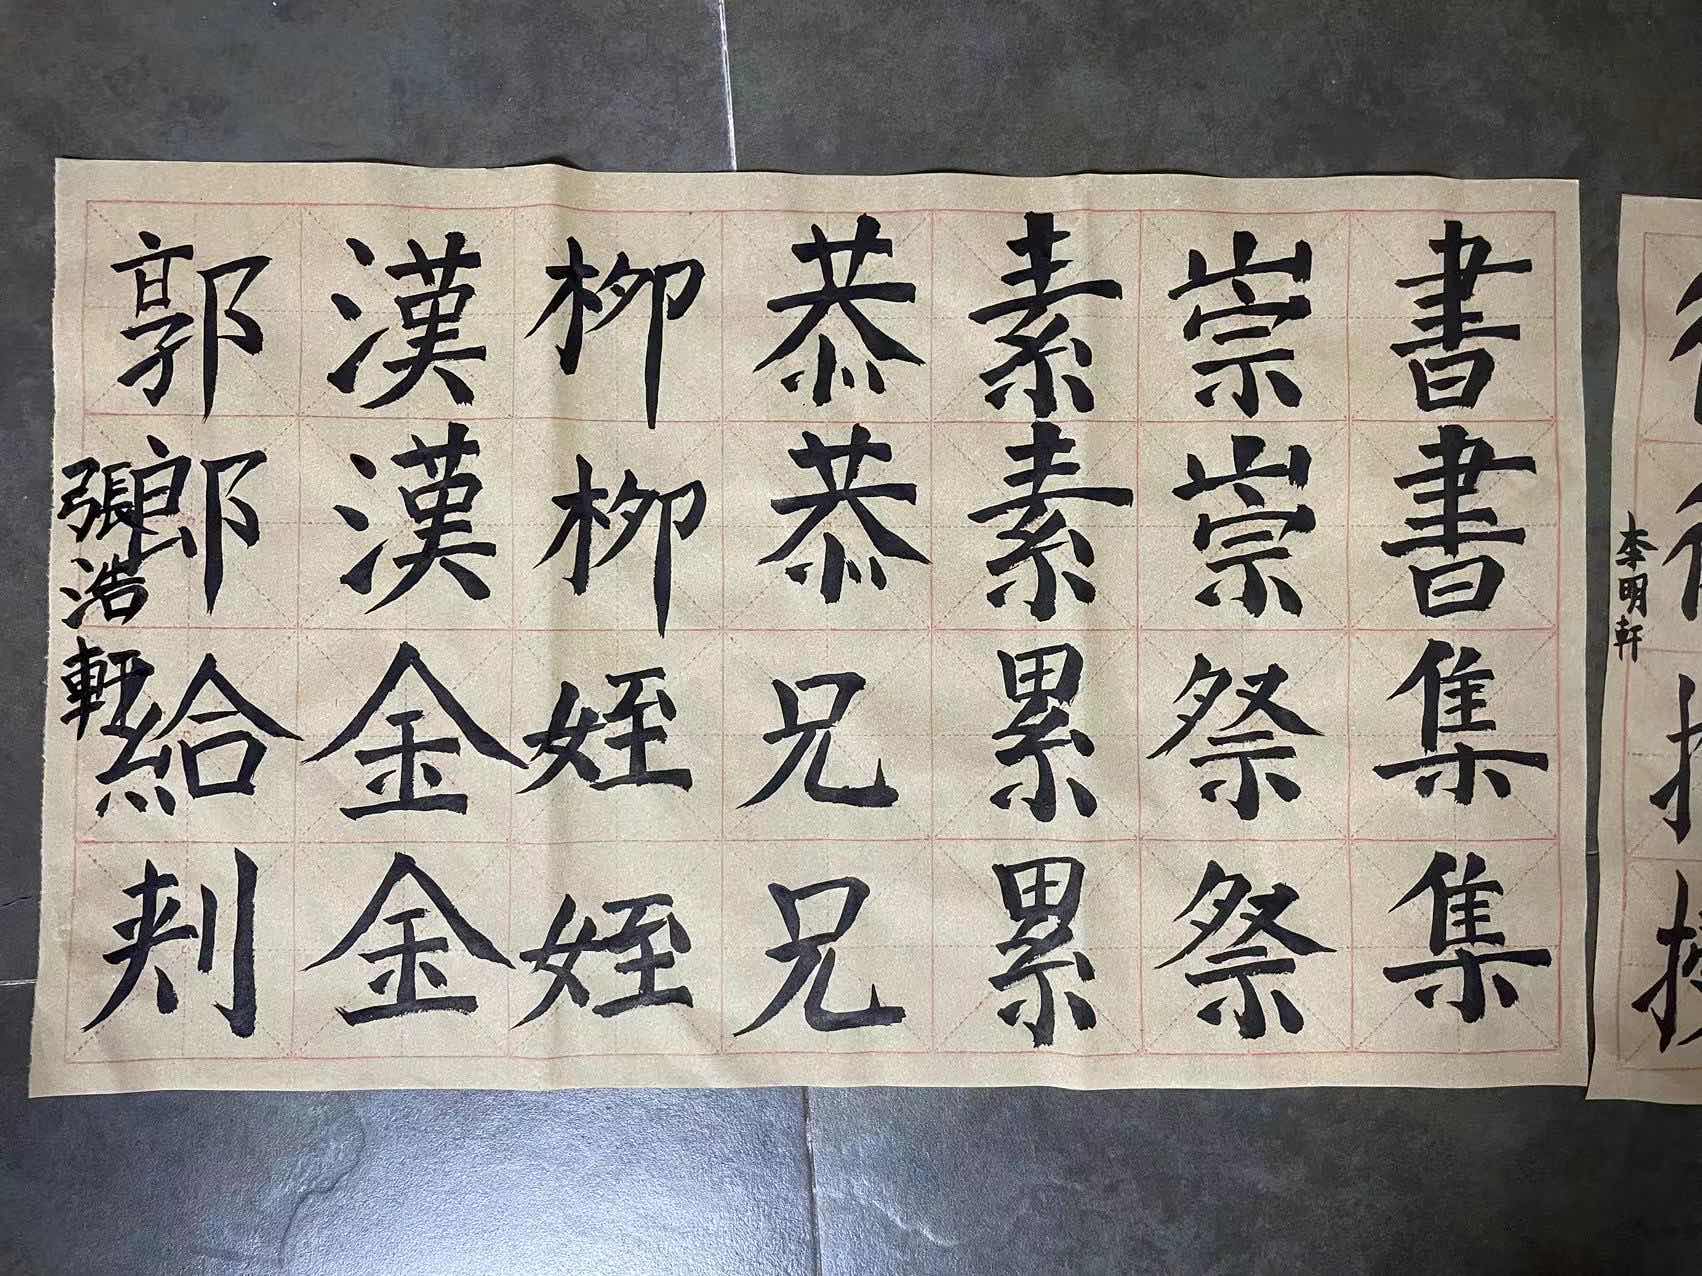 書書集集
崇崇祭祭
素素累累
恭恭兄兄
柳柳姪姪
漢漢金金
郭郎給刾
張浩軒
李明軒